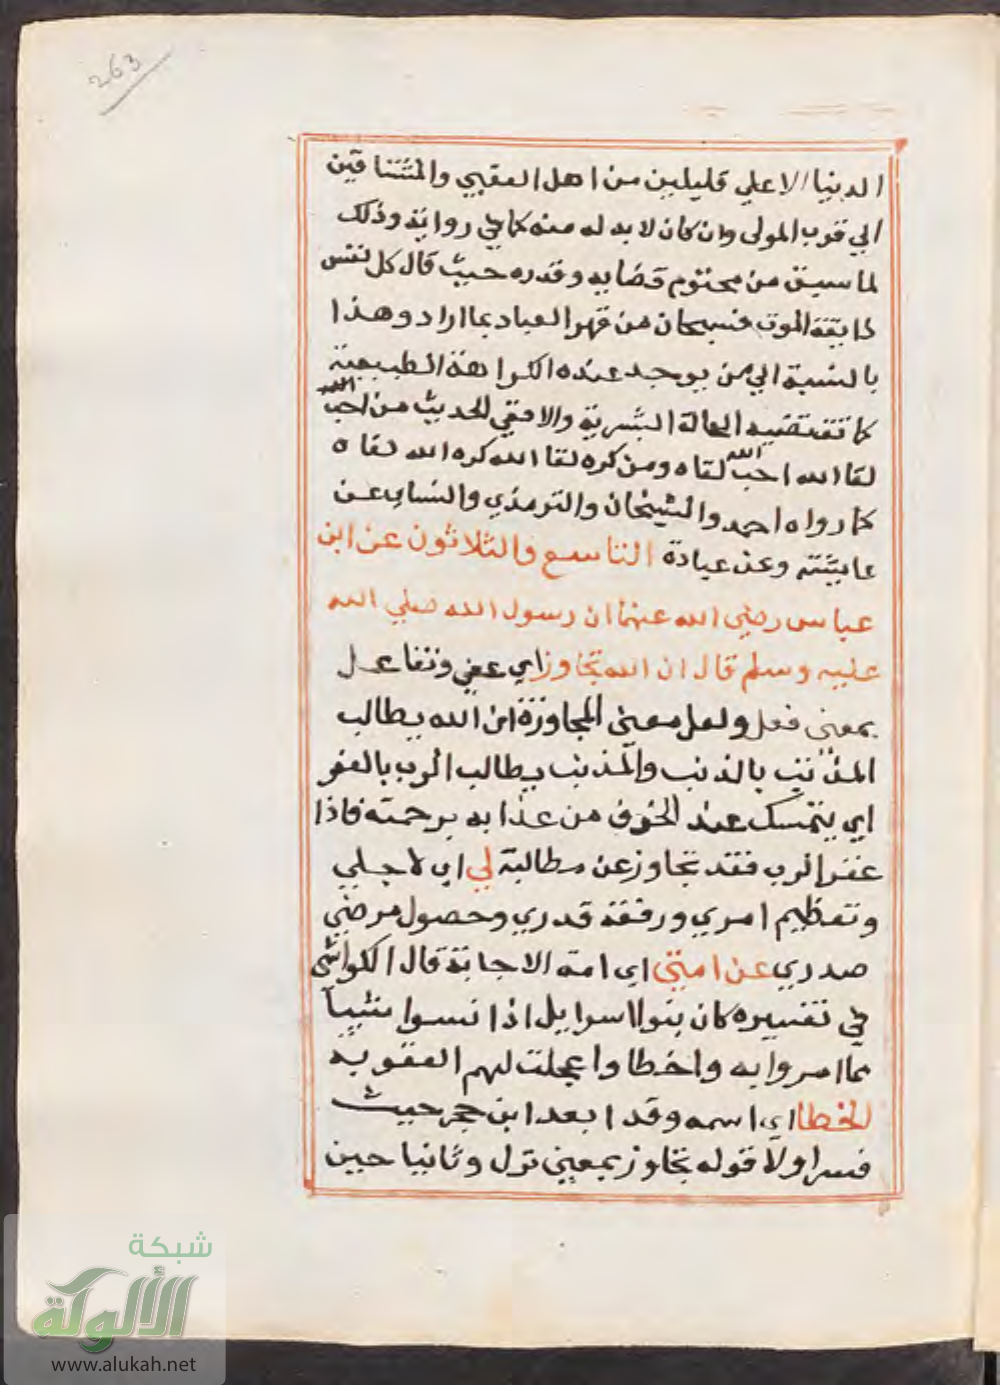 263
الدنيا الا علي قليلين من اهل العقبي والمشتاقين
الي قرب المولى وان كان لا بد له منه كما في رواية وذلك
لما سبق من محتوم قضايه وقدره حيث قال كل نفس
ذايقة الموت فسبحان من قهر العباد بما اراد وهذا
بالنسبة الي من يوجد عنده الكراهة الطبيعية
كما تقتضيه الحالة البشرية والا ففي الحديث من احب الله
لقا الله احب الله لقاه ومن كره لقا الله كره الله لقاه
كما رواه احمد والشيخان والترمذي والنساي عن
عايشة وعن عبادة التاسع والثلاثون عن ابن
عباس رضي الله عنهما ان رسول الله صلي الله
عليه وسلم قال ان الله تجاوز اي عفي وتفاعل
بمعني فعل ولعل معني المجاوزة ان الله يطالب
المذنب بالذنب والمذنب يطالب الرب بالعفو
اي يتمسك عند الخوف من عذابه برحمته فاذا
غفر الرب فقد تجاوز عن مطالبة لي اي لاجلي
وتعظيم امري ورفعة قدري وحصول مرضي
صدري عن امتي اي امة الاجابة قال الكواشي
في تفسيره كان بنوا اسرايل اذا نسوا شيا
مما امروا به واخطاوا عجلت لهم العقوبه
الخطا اي اسمه وقد ابعد ابن حجر حيث
فسر اولا قوله تجاوز بمعني ترك وثانيا حين
شبكة
الألوكة
www.alukah.net